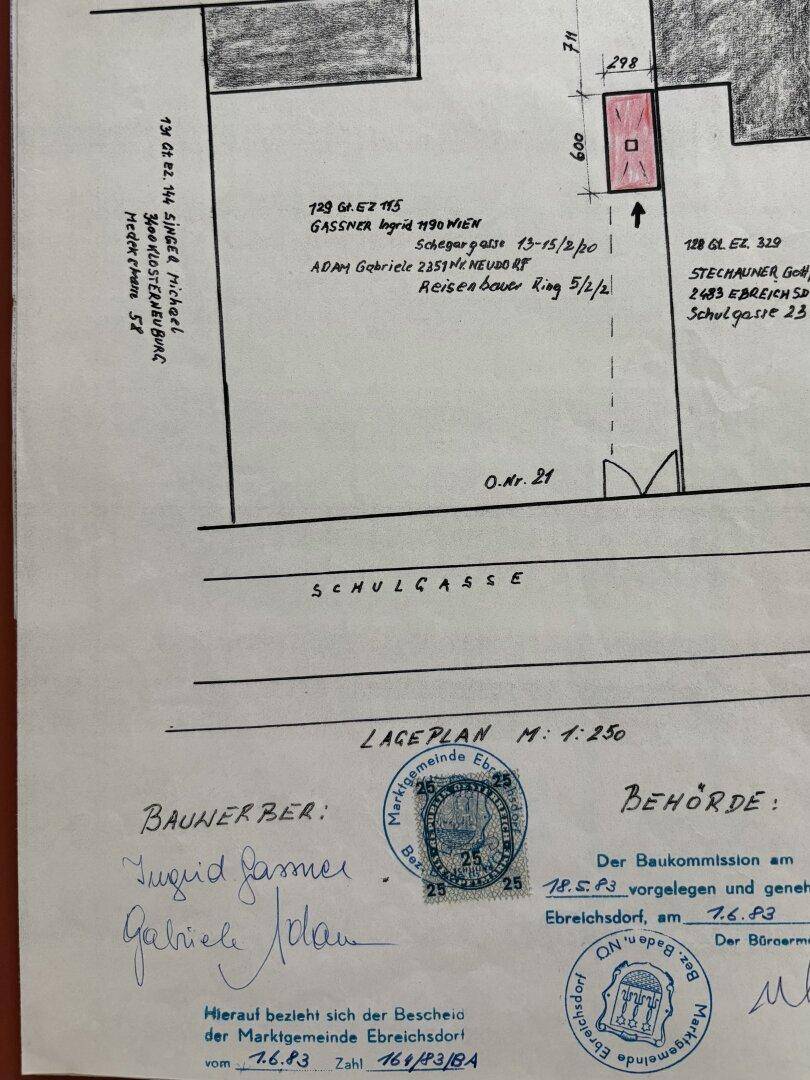 711
298
600
131 Gt. EZ. 144 SINGER Michael
3400 KLOSTERNEUBURG
Medekstram 58
129 Gt. EZ 115
GASSNER Ingrid 1190 WIEN
Schegargasse 13-15/2/20
ADAM Gabriele 2351 NEUDORF
Reisenbauer Ring 5/2/2
128 Gt. EZ. 329
STECHAUNER
2483 EBREICHSD
Schulgasse 23
O.Nr. 21
SCHULGASSE
LAGEPLAN M: 1:250
BAUWERBER:
Ingrid Gassner
Gabriele Adam
Marktgemeinde Ebreichsdorf
Bez.
25 25
25
25 25
BEHÖRDE:
Der Baukommission am
18.5.83 vorgelegen und geneh
Ebreichsdorf, am 1.6.83
Der Bürgerme
Marktgemeinde Ebreichsdorf
Bez. Baden, NÖ
Hierauf bezieht sich der Bescheid
der Marktgemeinde Ebreichsdorf
vom 1.6.83 Zahl 164/83/BA